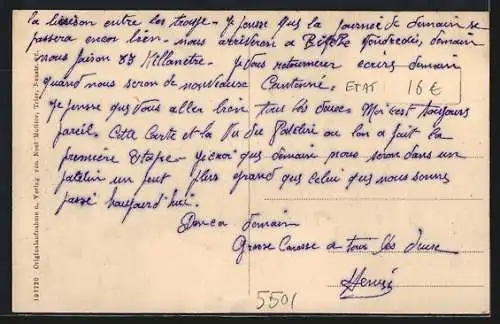 la liaison entre les troupe. Je pense que la journée de demain se
passera encor bien. nous arriveron a Vendredi, demain
nous faison 23 Killometre. Je vous retournerer ecrire demain
quand nous seron de nouveaux Cantonné. ETAT 16 €
Je pense que vous aller bien tous les deux. Moi c'est toujours
pareil. Cette Carte et la Vu du Patelin ou l'on a fait la
première Etape. Je croi que demain nous seron dans un
patelin un peut plus grand que celui que nous somme
passé haujourd'hui.
Donc a demain
Grosse Caresse a tous les deux
Henri
5501
191720 Originalaufnahme u. Verlag von Trier,